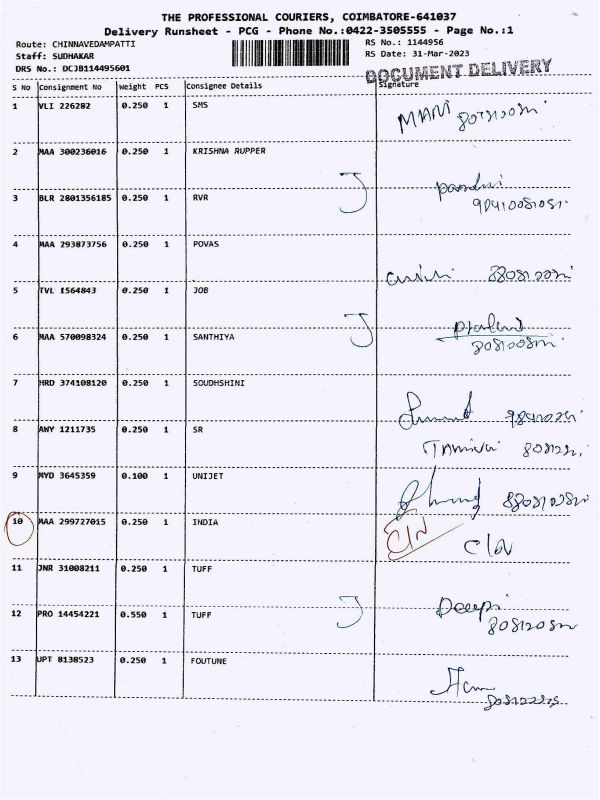 THE PROFESSIONAL COURIERS, COIMBATORE-641037
Delivery Runsheet - PCG - Phone No.:0422-3505555 - Page No.:1
Route: CHINNAVEDAMPATTI
RS No.: 1144956
Staff: SUDHAKAR
RS Date: 31-Mar-2023
DRS No.: DCJB114495601
DOCUMENT DELIVERY
S No Consignment No Weight PCS Consignee Details Signature
1 VLI 226282 0.250 1 SMS
MANI
2 MAA 300236016 0.250 1 KRISHNA RUPPER
3 BLR 2801356185 0.250 1 RVR
4 MAA 293873756 0.250 1 POVAS
5 TVL 1564843 0.250 1 JOB
6 MAA 570098324 0.250 1 SANTHIYA
7 HRD 374108120 0.250 1 SOUDHSHINI
8 AWY 1211735 0.250 1 SR
9 MYD 3645359 0.100 1 UNIJET
10 MAA 299727015 0.250 1 INDIA
11 JNR 31008211 0.250 1 TUFF
12 PRO 14454221 0.550 1 TUFF
Deepi
13 UPT 8138523 0.250 1 FOUTUNE